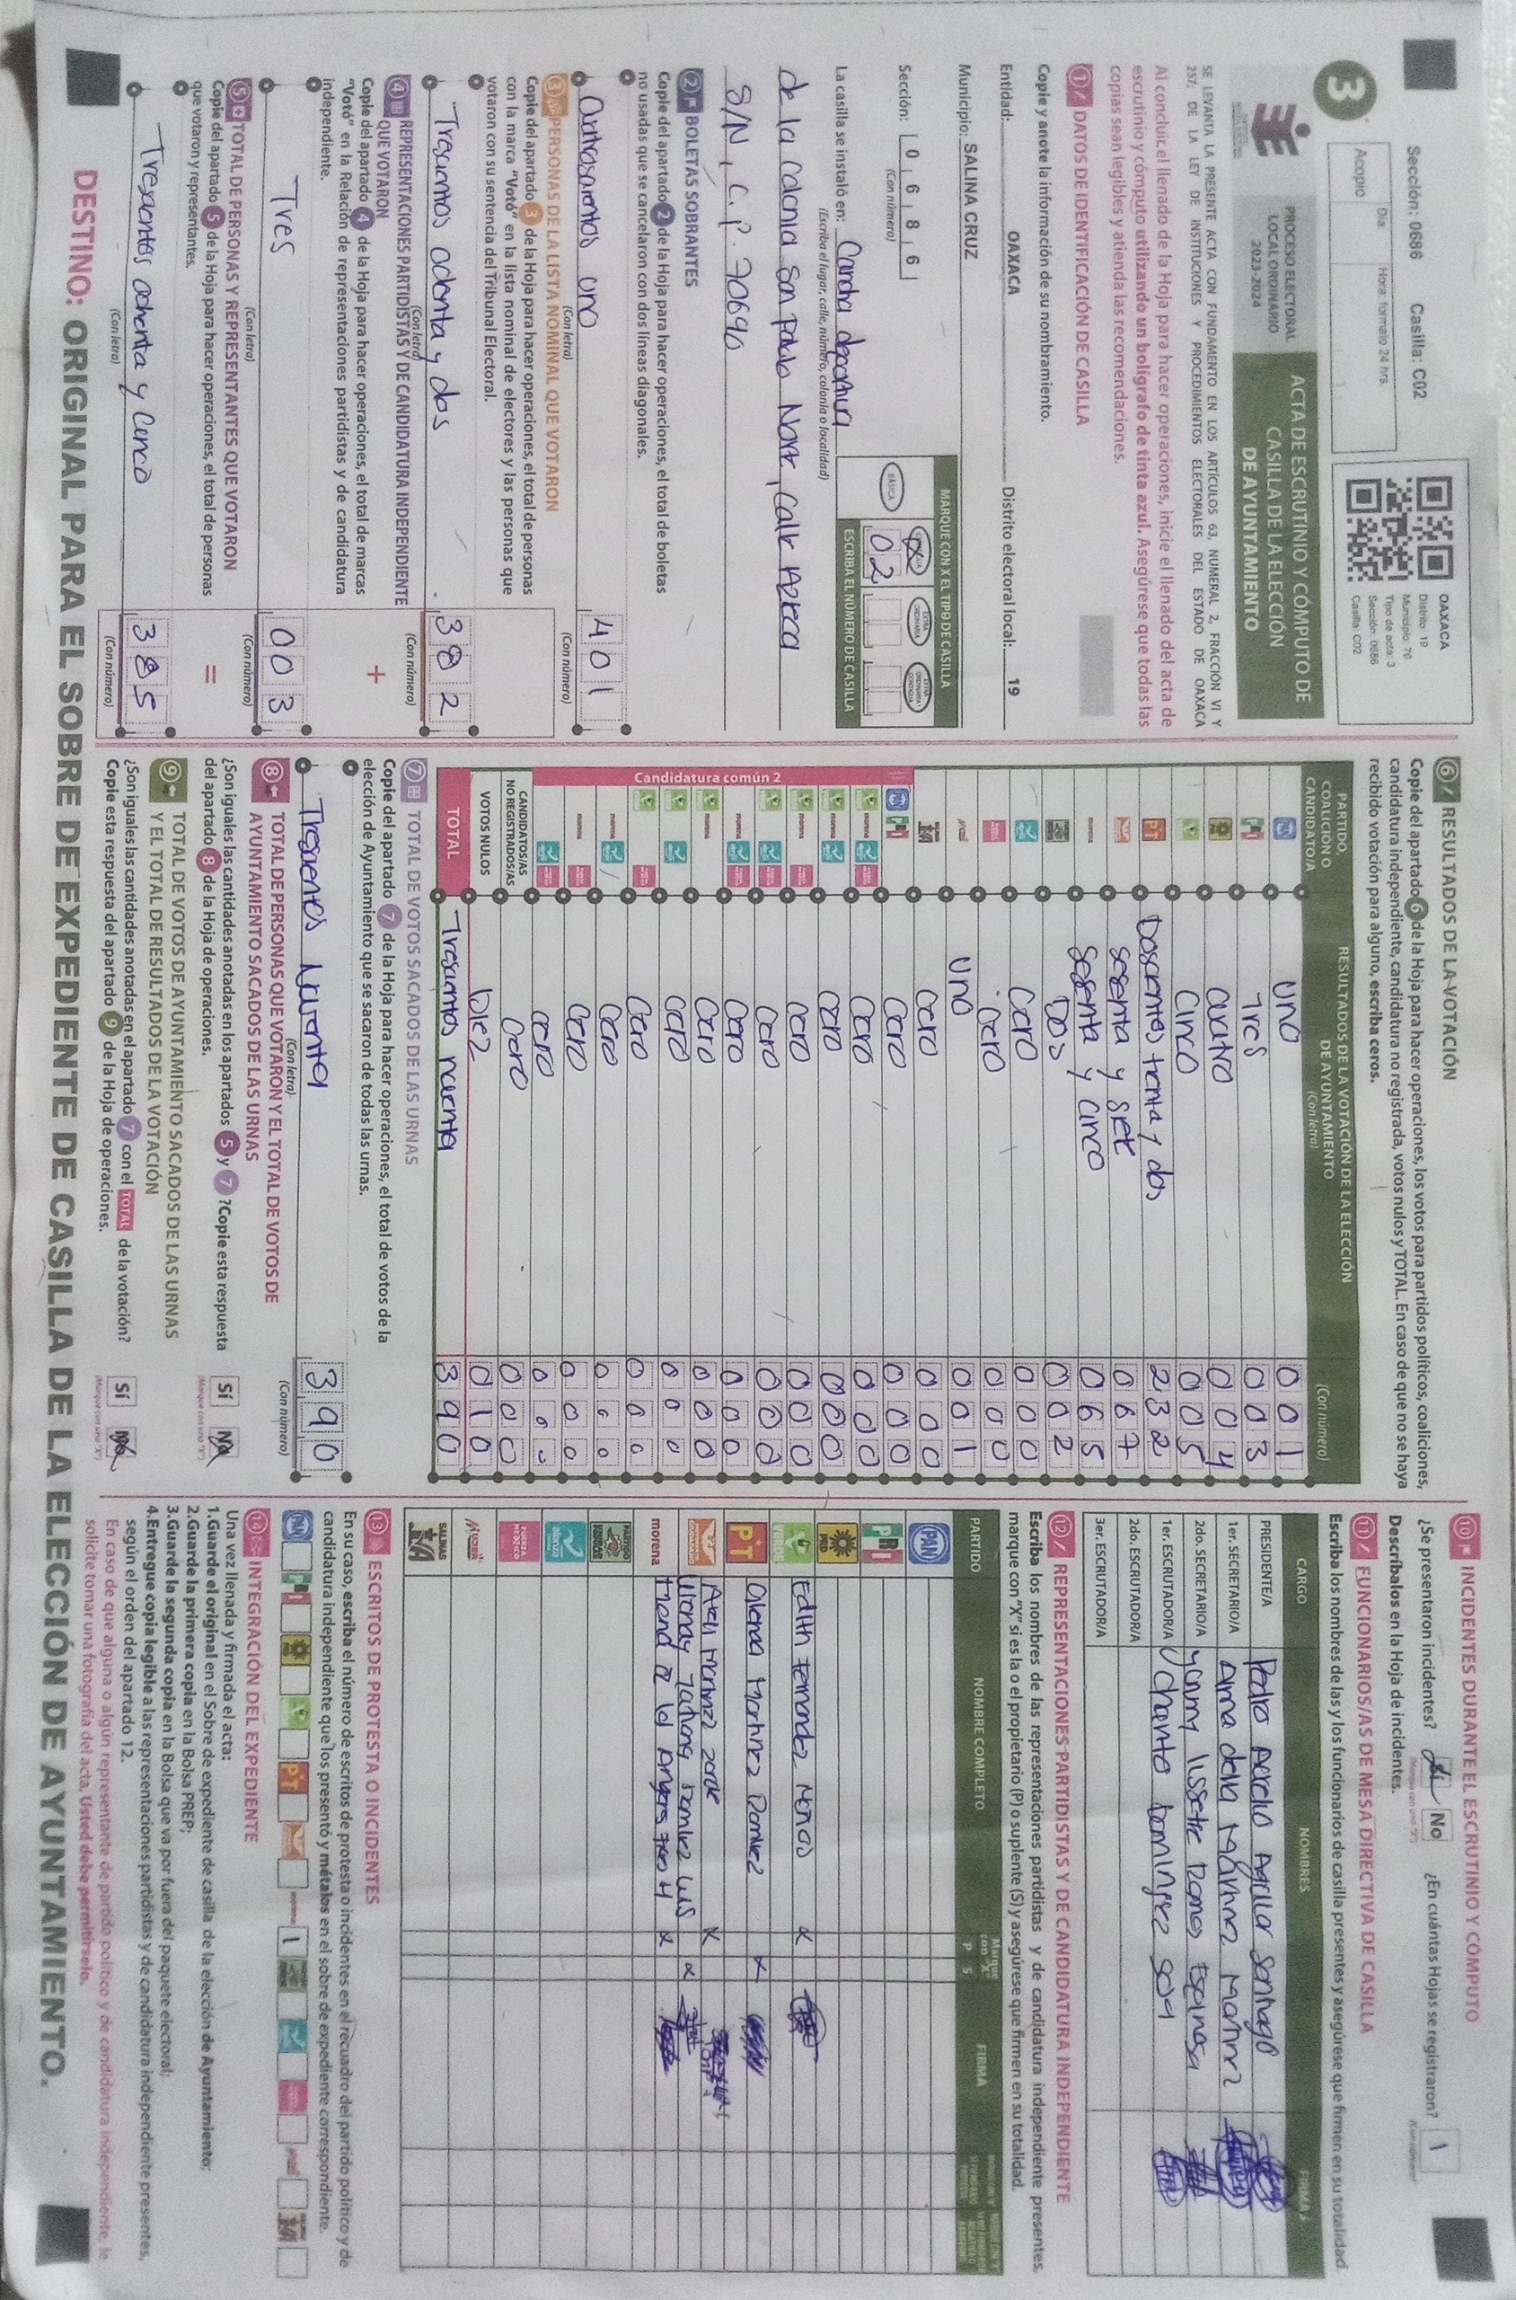 3
Sección: 0686 Casilla: C02
Día: Hora: formato 24 hrs.
Acopio
OAXACA
Distrito: 19
Municipio: 76
Tipo de acta: 3
Sección: 0686
Casilla: C02
PROCESO ELECTORAL
LOCAL ORDINARIO
2023-2024
ACTA DE ESCRUTINIO Y CÓMPUTO DE
CASILLA DE LA ELECCIÓN
DE AYUNTAMIENTO
SE LEVANTA LA PRESENTE ACTA CON FUNDAMENTO EN LOS ARTÍCULOS 63, NUMERAL 2, FRACCIÓN VI Y
257; DE LA LEY DE INSTITUCIONES Y PROCEDIMIENTOS ELECTORALES DEL ESTADO DE OAXACA
Al concluir el llenado de la Hoja para hacer operaciones, inicie el llenado del acta de
escrutinio y cómputo utilizando un bolígrafo de tinta azul. Asegúrese que todas las
copias sean legibles y atienda las recomendaciones.
1 DATOS DE IDENTIFICACIÓN DE CASILLA
Copie y anote la información de su nombramiento.
Entidad: OAXACA Distrito electoral local: 19
Municipio: SALINA CRUZ
Sección: 0 6 8 6
(Con número)
MARQUE CON X EL TIPO DE CASILLA
BÁSICA
EXTRA ORDINARIA
ESCRIBA EL NÚMERO DE CASILLA
02
La casilla se instaló en: Cancha deportiva
(Escriba el lugar, calle, número, colonia o localidad)
de la Colonia San Pablo Norte, Calle Azteca
S/N, C.P. 70690
2 BOLETAS SOBRANTES
Copie del apartado 2 de la Hoja para hacer operaciones, el total de boletas
no usadas que se cancelaron con dos líneas diagonales.
uno 401
(Con letra) (Con número)
3 PERSONAS DE LA LISTA NOMINAL QUE VOTARON
Copie del apartado 3 de la Hoja para hacer operaciones, el total de personas
con la marca "Votó" en la lista nominal de electores y las personas que
votaron con su sentencia del Tribunal Electoral.
Trescientos ochenta y dos 382
(Con letra) (Con número)
4 REPRESENTACIONES PARTIDISTAS Y DE CANDIDATURA INDEPENDIENTE
QUE VOTARON
Copie del apartado 4 de la Hoja para hacer operaciones, el total de marcas
"Votó" en la Relación de representaciones partidistas y de candidatura
independiente.
+
Tres 003
(Con letra) (Con número)
5 TOTAL DE PERSONAS Y REPRESENTANTES QUE VOTARON
Copie del apartado 5 de la Hoja para hacer operaciones, el total de personas
que votaron y representantes.
=
Trescientos ochenta y cinco 385
(Con letra) (Con número)
6 RESULTADOS DE LA VOTACIÓN
Copie del apartado 6 de la Hoja para hacer operaciones, los votos para partidos políticos, coaliciones,
candidatura independiente, candidatura no registrada, votos nulos y TOTAL. En caso de que no se haya
recibido votación para alguno, escriba ceros.
PARTIDO, COALICIÓN O CANDIDATO/A
RESULTADOS DE LA VOTACIÓN DE LA ELECCIÓN DE AYUNTAMIENTO
(Con letra) (Con número)
PAN uno 001
PRI Tres 003
cuatro 004
cinco 005
PT Doscientos treinta y dos 232
sesenta y siete 067
morena sesenta y cinco 065
Dos 002
cero 000
cero 000
uno 001
cero 000
PAN PRI cero 000
Candidatura común 2
cero 000
cero 000
cero 000
cero 000
cero 000
cero 000
cero 000
cero 000
cero 000
cero 000
cero 000
CANDIDATOS/AS NO REGISTRADOS/AS cero 000
VOTOS NULOS Diez 010
TOTAL Trescientos noventa 390
7 TOTAL DE VOTOS SACADOS DE LAS URNAS
Copie del apartado 7 de la Hoja para hacer operaciones, el total de votos de la
elección de Ayuntamiento que se sacaron de todas las urnas.
Trescientos Noventa 390
(Con letra) (Con número)
8 TOTAL DE PERSONAS QUE VOTARON Y EL TOTAL DE VOTOS DE
AYUNTAMIENTO SACADOS DE LAS URNAS
¿Son iguales las cantidades anotadas en los apartados 5 y 7? Copie esta respuesta
del apartado 8 de la Hoja de operaciones.
Sí No
(Marque con una "X")
9 TOTAL DE VOTOS DE AYUNTAMIENTO SACADOS DE LAS URNAS
Y EL TOTAL DE RESULTADOS DE LA VOTACIÓN
¿Son iguales las cantidades anotadas en el apartado 7 con el TOTAL de la votación?
Copie esta respuesta del apartado 9 de la Hoja de operaciones.
Sí No
(Marque con una "X")
10 INCIDENTES DURANTE EL ESCRUTINIO Y CÓMPUTO
¿Se presentaron incidentes? Sí No ¿En cuántas Hojas se registraron? 1
(Marque con una "X") (Con número)
Descríbalos en la Hoja de incidentes.
11 FUNCIONARIOS/AS DE MESA DIRECTIVA DE CASILLA
Escriba los nombres de las y los funcionarios de casilla presentes y asegúrese que firmen en su totalidad.
CARGO NOMBRES FIRMAS
PRESIDENTE/A Pedro Aguilar Santiago
1er. SECRETARIO/A Anna delia Martinez
2do. SECRETARIO/A lissette Ramos Espinosa
1er. ESCRUTADOR/A Dominguez
2do. ESCRUTADOR/A
3er. ESCRUTADOR/A
12 REPRESENTACIONES PARTIDISTAS Y DE CANDIDATURA INDEPENDIENTE
Escriba los nombres de las representaciones partidistas y de candidatura independiente presentes,
marque con "X" si es la o el propietario (P) o suplente (S) y asegúrese que firmen en su totalidad.
PARTIDO NOMBRE COMPLETO Marque con "X" P S FIRMA
PAN
PRI
PRD
VERDE Edith x
PT Martinez x
Areli Martinez x
x
morena de los Angeles x
PARTIDO UNIDAD POPULAR
FUERZA MÉXICO
MUJER
SALINAS
13 ESCRITOS DE PROTESTA O INCIDENTES
En su caso, escriba el número de escritos de protesta o incidentes en el recuadro del partido político y de
candidatura independiente que los presentó y métalos en el sobre de expediente correspondiente.
PAN PRI PT morena 1
14 INTEGRACIÓN DEL EXPEDIENTE
Una vez llenada y firmada el acta:
1.Guarde el original en el Sobre de expediente de casilla de la elección de Ayuntamiento;
2.Guarde la primera copia en la Bolsa PREP;
3.Guarde la segunda copia en la Bolsa que va por fuera del paquete electoral;
4.Entregue copia legible a las representaciones partidistas y de candidatura independiente presentes,
según el orden del apartado 12.
En caso de que alguna o algún representante de partido político y de candidatura independiente, le
solicite tomar una fotografía del acta, Usted debe permitírselo.
DESTINO: ORIGINAL PARA EL SOBRE DE EXPEDIENTE DE CASILLA DE LA ELECCIÓN DE AYUNTAMIENTO.